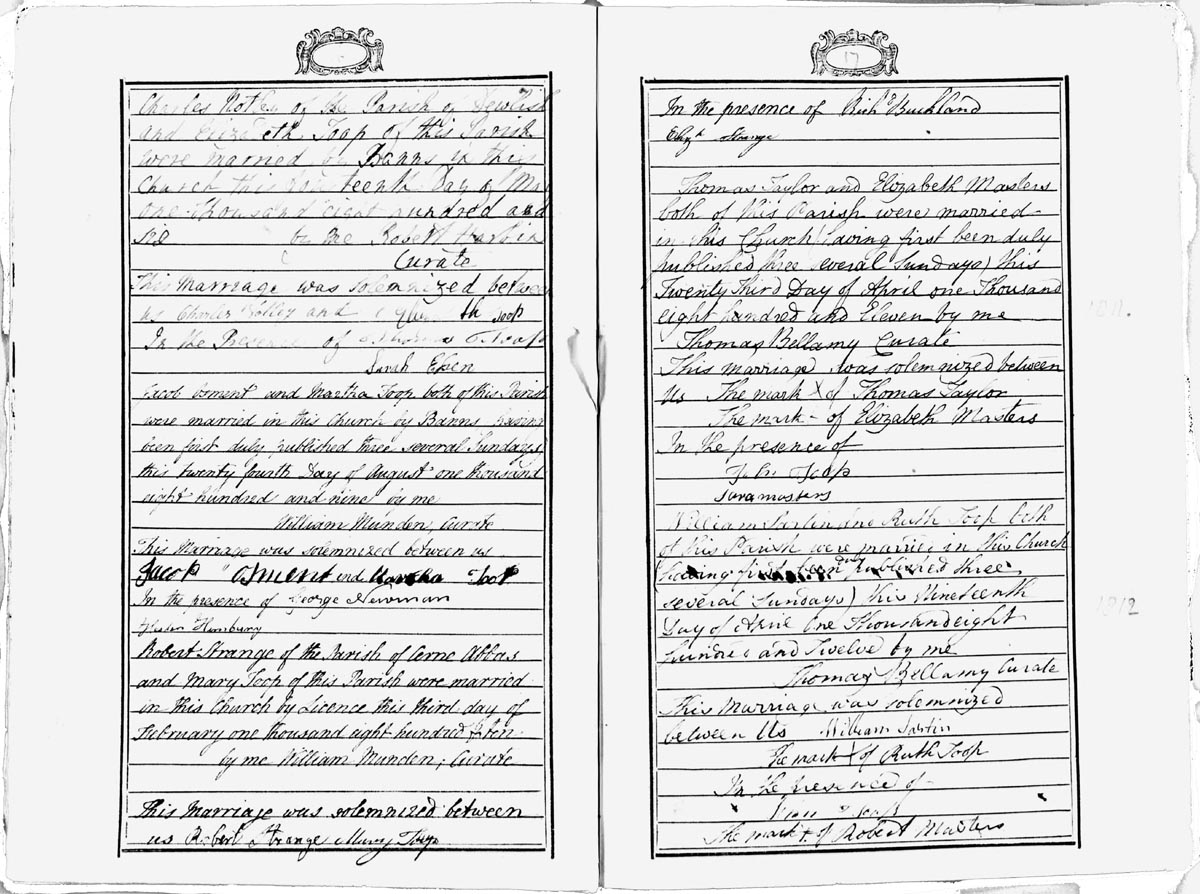 Charles Notley of the Parish of Dewlish
and Elizabeth Toop of this Parish
were married by Banns in this
Church this fourteenth Day of May
one thousand eight hundred and
six by me Robert
Curate
This Marriage was solemnized between
us Charles Notley and Toop
In the Presence of Toop
Sarah
Jacob Osment and Martha Toop both of this Parish
were married in this Church by Banns having
been first duly published three several Sundays
this twenty fourth Day of August one thousand
eight hundred and nine by me
William Munden, Curate
This Marriage was solemnized between us
Jacob Osment and Martha Toop
In the presence of George Newman
Robert Strange of the Parish of Cerne Abbas
and Mary Toop of this Parish were married
in this Church by Licence this third day of
February one thousand eight hundred & ten
by me William Munden, Curate
This Marriage was solemnized between
us Robert Strange Mary Toop
17
In the presence of Richd Buckland
Elizh Strange
Thomas Taylor and Elizabeth Masters
both of this Parish were married
in this Church (having first been duly
published three several Sundays) this
Twenty Third Day of April one Thousand
eight hundred and Eleven by me
Thomas Bellamy Curate
This marriage was solemnized between
Us The mark X of Thomas Taylor
The mark - of Elizabeth Masters
In the presence of
Toop
Sara masters
1811.
William Sartin and Ruth Toop both
of this Parish were married in this Church
(having first been duly published three
several Sundays) this Nineteenth
Day of April One Thousand eight
hundred and Twelve by me
Thomas Bellamy Curate
1812
This Marriage was solemnized
between Us William Sartin
The mark X of Ruth Toop
In the presence of
Toop
The mark + of Robert Masters